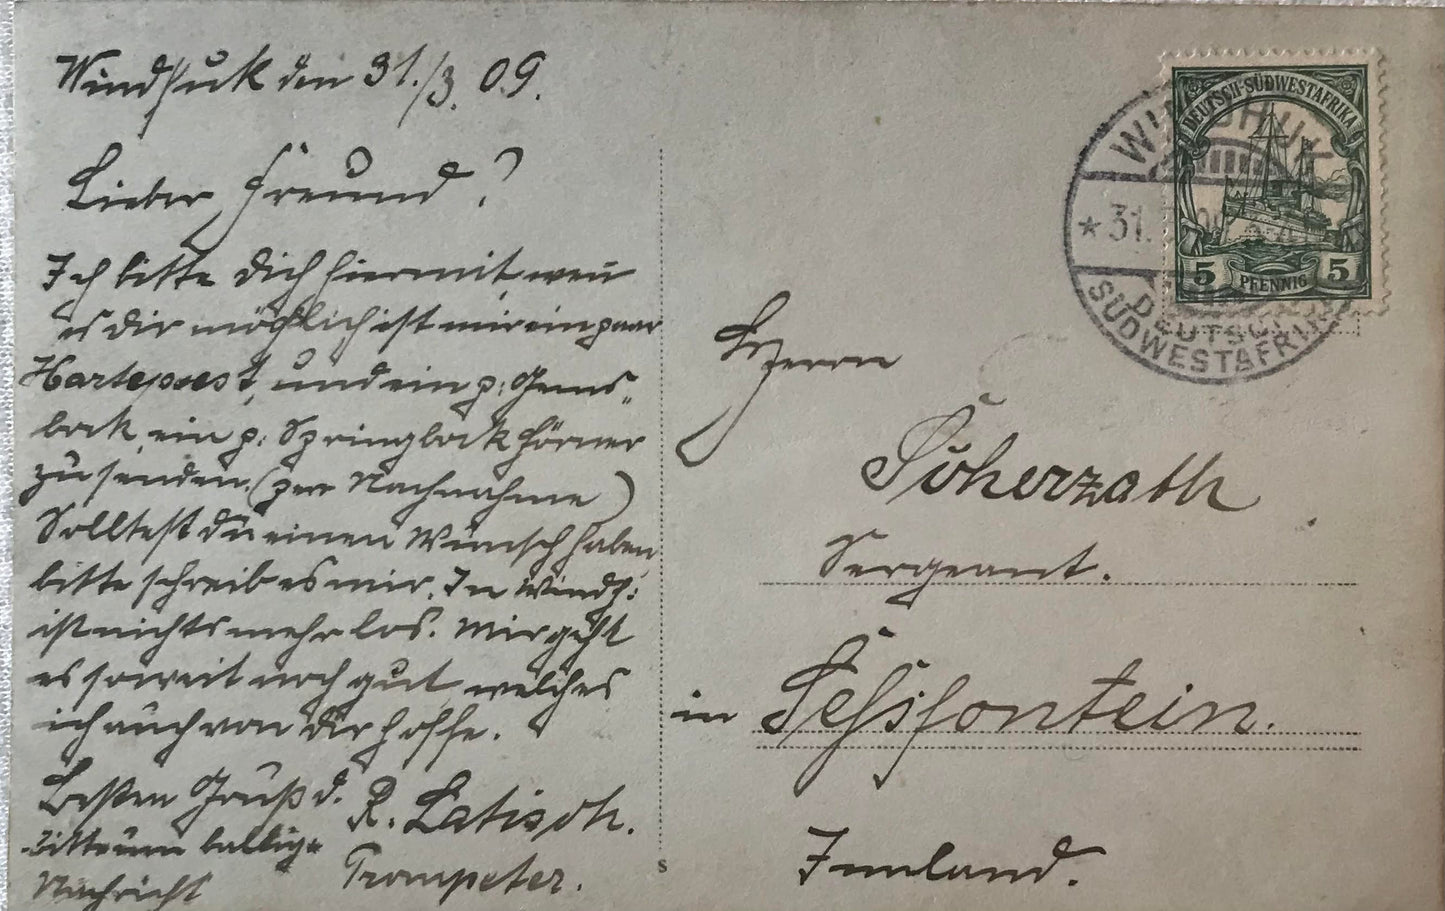 Windhuk den 31./3. 09.
Lieber Freund!
Ich bitte dich hiermit, wen
es dir möchlich ist mir ein paar
Hartepeest, und ein p: Gems„
bock, ein p: Springbock hörner
zu senden. (per Nachnahme)
Solltest du einen Wunsch haben,
bitte schreib es mir. In Windh:
ist nichts mehr los. Mir geht
es soweit noch gut, welches
ich auch von Dir hoffe.
Besten Gruß d. R. Latisch.
Trompeter.
Bitte um baldige
Nachricht
DEUTSCH-SÜDWESTAFRIKA
5 PFENNIG 5
WINDHUK
* 31.
DEUTSCH
SÜDWESTAFRIKA
Herrn
Scherzath
Sergeant.
in Seßfontein.
Innland.
s